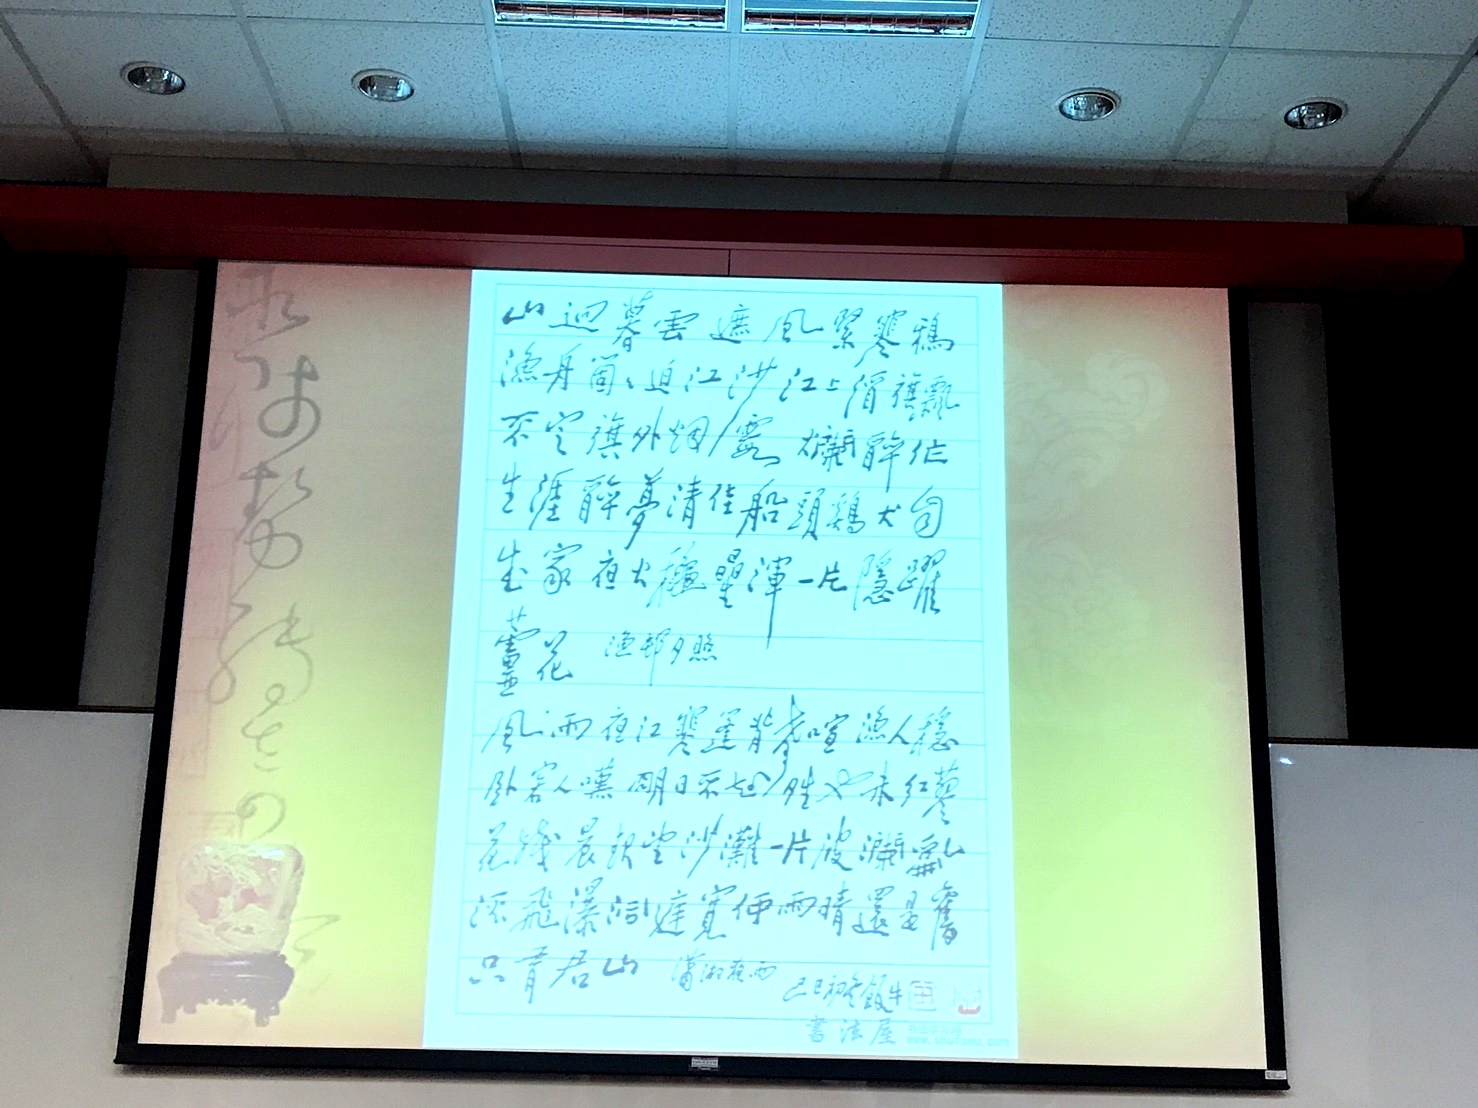 山迴暮雲遮風緊寒鴉
漁舟箇〻迫江沙江上酒旗飄
不定旗外烟霞爛醉作
生涯醉夢清佳船頭鷄犬自
成家夜火穐星渾一片隱躍
蘆花 漁邨夕照
風雨夜江寒蓬背聲喧漁人穩
臥客人嘆明日不知晴也未紅蓼
花殘晨起望沙灘一片波瀾亂
流飛瀑洞庭寬 雨晴還是舊
只有君山 瀟湘夜雨
己巳初冬飯牛
書法屋